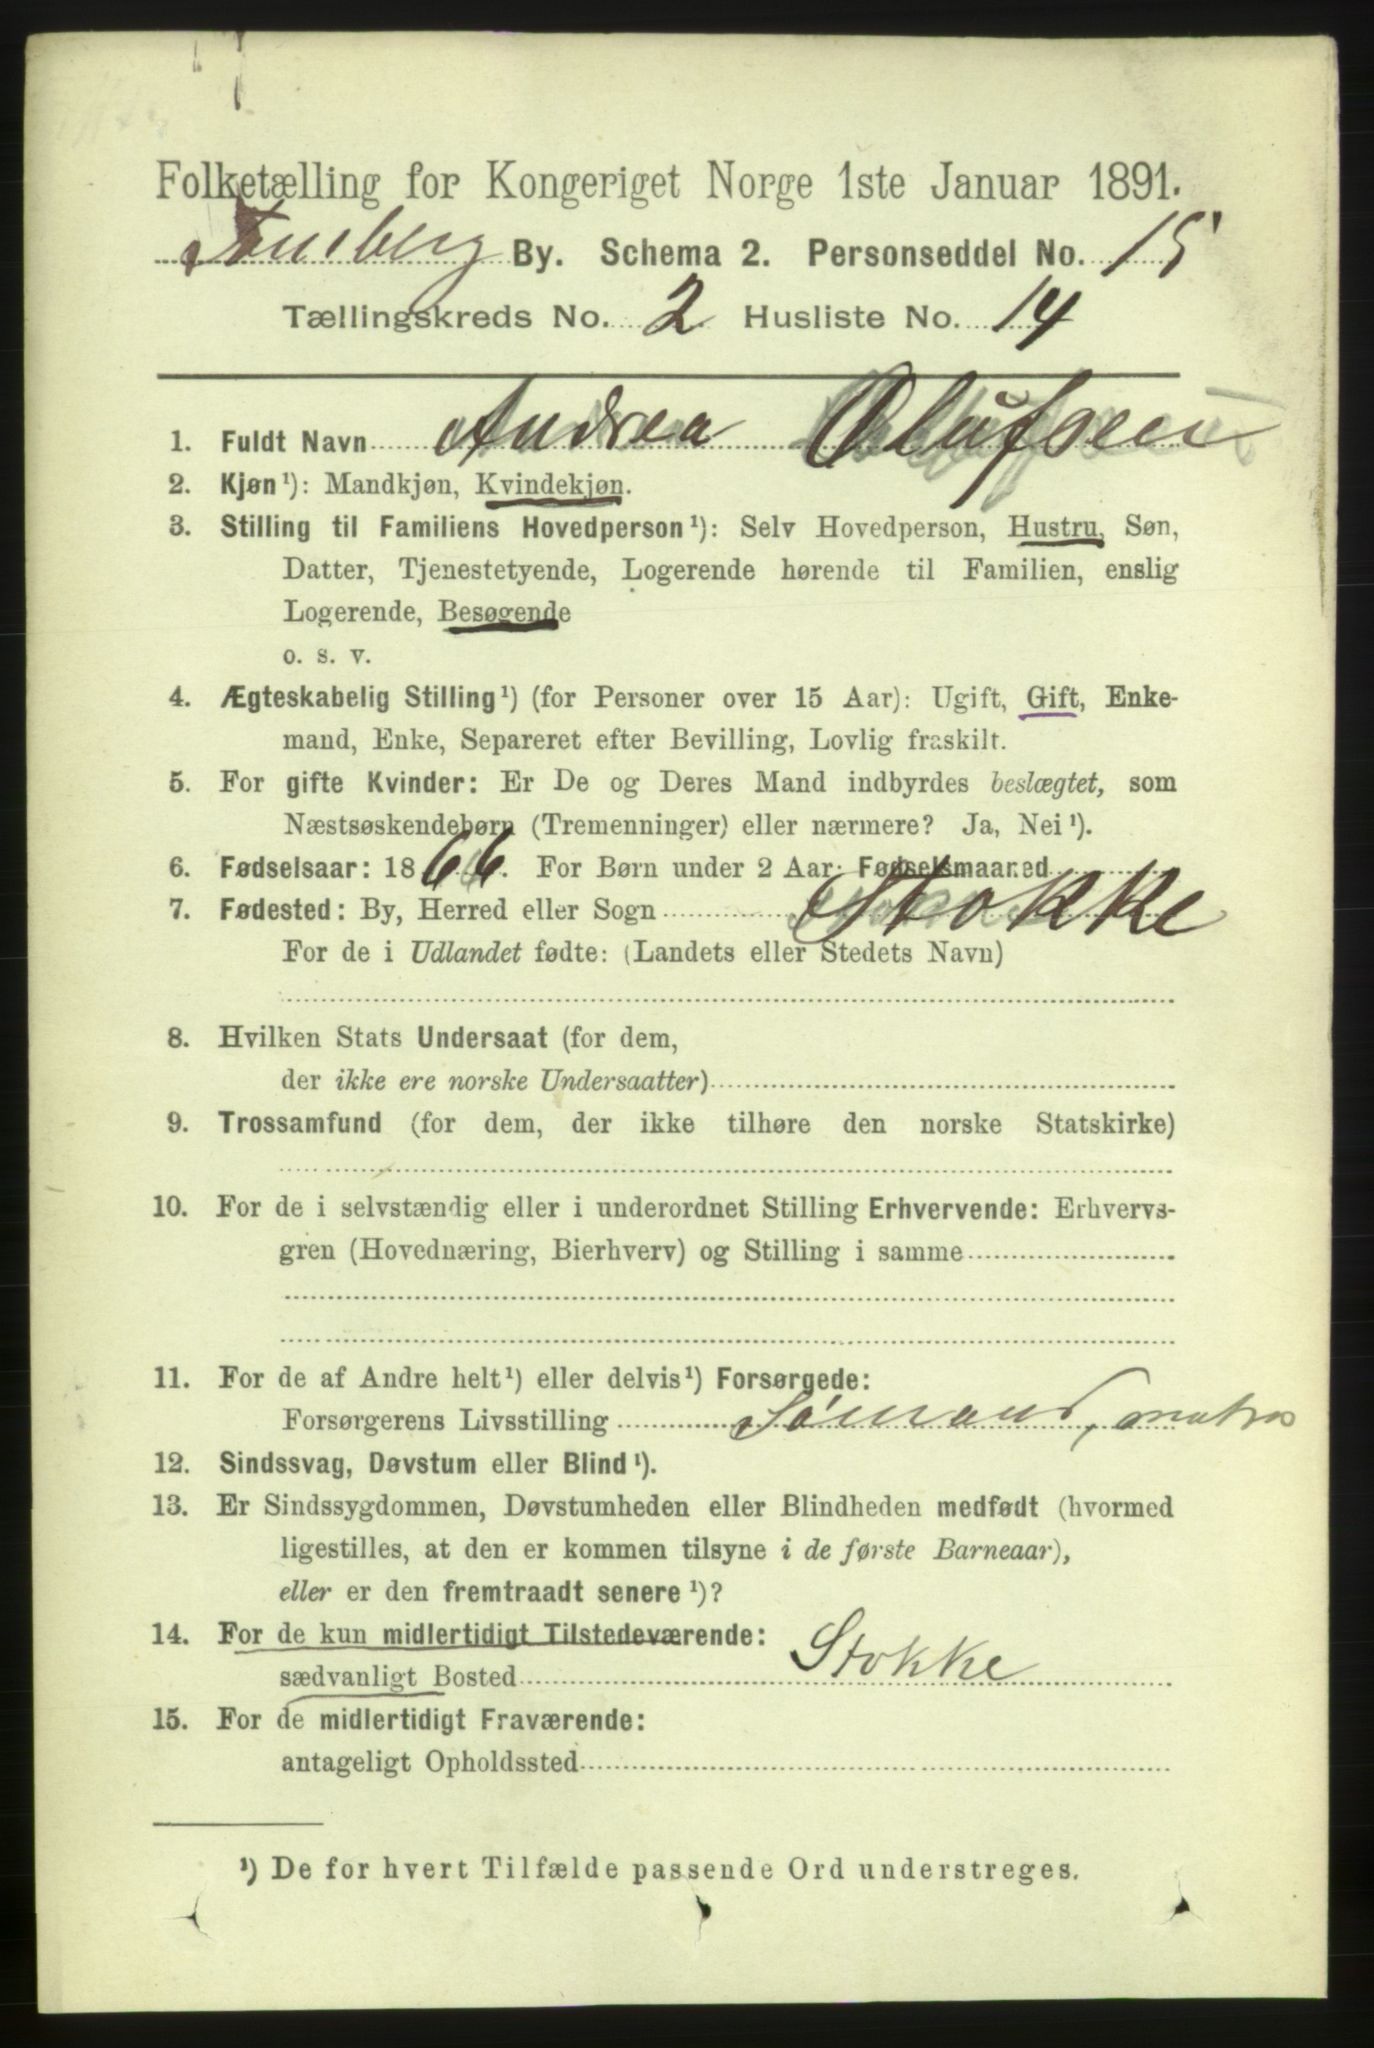 Folketælling for Kongeriget Norge 1ste Januar 1891.
Tønsberg By. Schema 2. Personseddel No. 15
Tællingskreds No. 2. Husliste No. 14
1. Fuldt Navn Andrea Olufsen
2. Kjøn¹): Mandkjøn, Kvindekjøn.
3. Stilling til Familiens Hovedperson¹): Selv Hovedperson, Hustru, Søn,
Datter, Tjenestetyende, Logerende hørende til Familien, enslig
Logerende, Besøgende
o. s. v.
4. Ægteskabelig Stilling¹) (for Personer over 15 Aar): Ugift, Gift, Enke-
mand, Enke, Separeret efter Bevilling, Lovlig fraskilt.
5. For gifte Kvinder: Er De og Deres Mand indbyrdes beslægtet, som
Næstsøskendebørn (Tremenninger) eller nærmere? Ja, Nei¹).
6. Fødselsaar: 1866. For Børn under 2 Aar: Fødselsmaaned
7. Fødested: By, Herred eller Sogn Stokke
For de i Udlandet fødte: (Landets eller Stedets Navn)
8. Hvilken Stats Undersaat (for dem,
der ikke ere norske Undersaatter)
9. Trossamfund (for dem, der ikke tilhøre den norske Statskirke)
10. For de i selvstændig eller i underordnet Stilling Erhvervende: Erhvervs-
gren (Hovednæring, Bierhverv) og Stilling i samme
11. For de af Andre helt¹) eller delvis¹) Forsørgede:
Forsørgerens Livsstilling Sömand, matros
12. Sindssvag, Døvstum eller Blind¹).
13. Er Sindssygdommen, Døvstumheden eller Blindheden medfødt (hvormed
ligestilles, at den er kommen tilsyne i de første Barneaar),
eller er den fremtraadt senere¹)?
14. For de kun midlertidigt Tilstedeværende:
sædvanligt Bosted Stokke
15. For de midlertidigt Fraværende:
antageligt Opholdssted
¹) De for hvert Tilfælde passende Ord understreges.